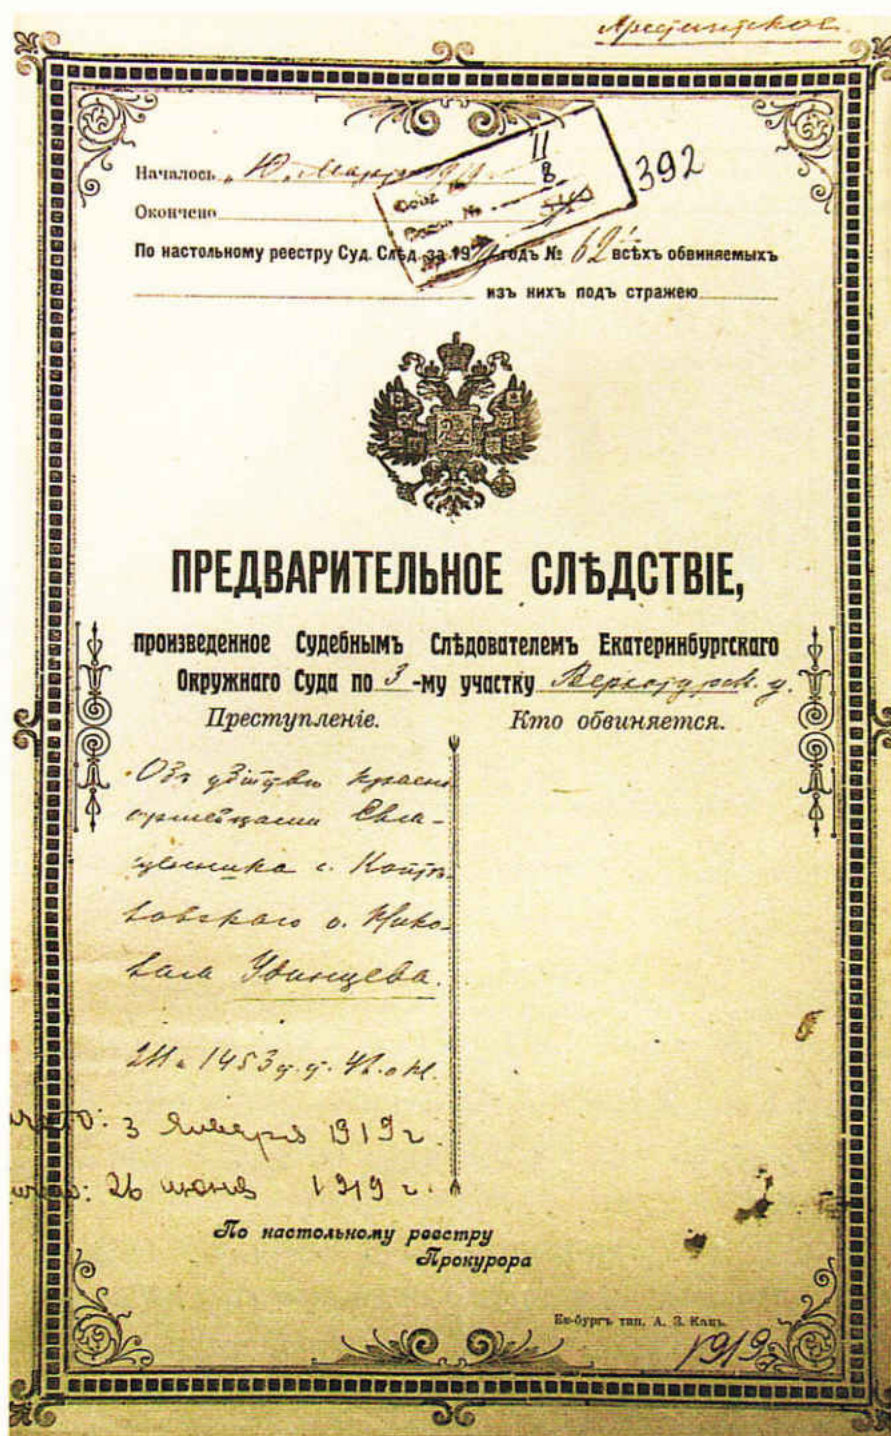 Арестантское
Началось „10„ Марта 1919
II
8
392
Окончено
По настольному реестру Суд. Слѣд. за 1919 годъ № 62 всѣхъ обвиняемыхъ
изъ нихъ подъ стражею
ПРЕДВАРИТЕЛЬНОЕ СЛѢДСТВІЕ,
произведенное Судебнымъ Слѣдователемъ Екатеринбургскаго
Окружнаго Суда по 3-му участку Верхотурск. у.
Преступленіе.
Кто обвиняется.
Объ убійствѣ красно
армейцами Свя-
щенника с.
о. Нико-
лая Увинцева.
1453 у. у.
3 Января 1919 г.
26 июня 1919 г.
По настольному реестру
Прокурора
Ек-бургъ тип. А. З. Кацъ.
1919